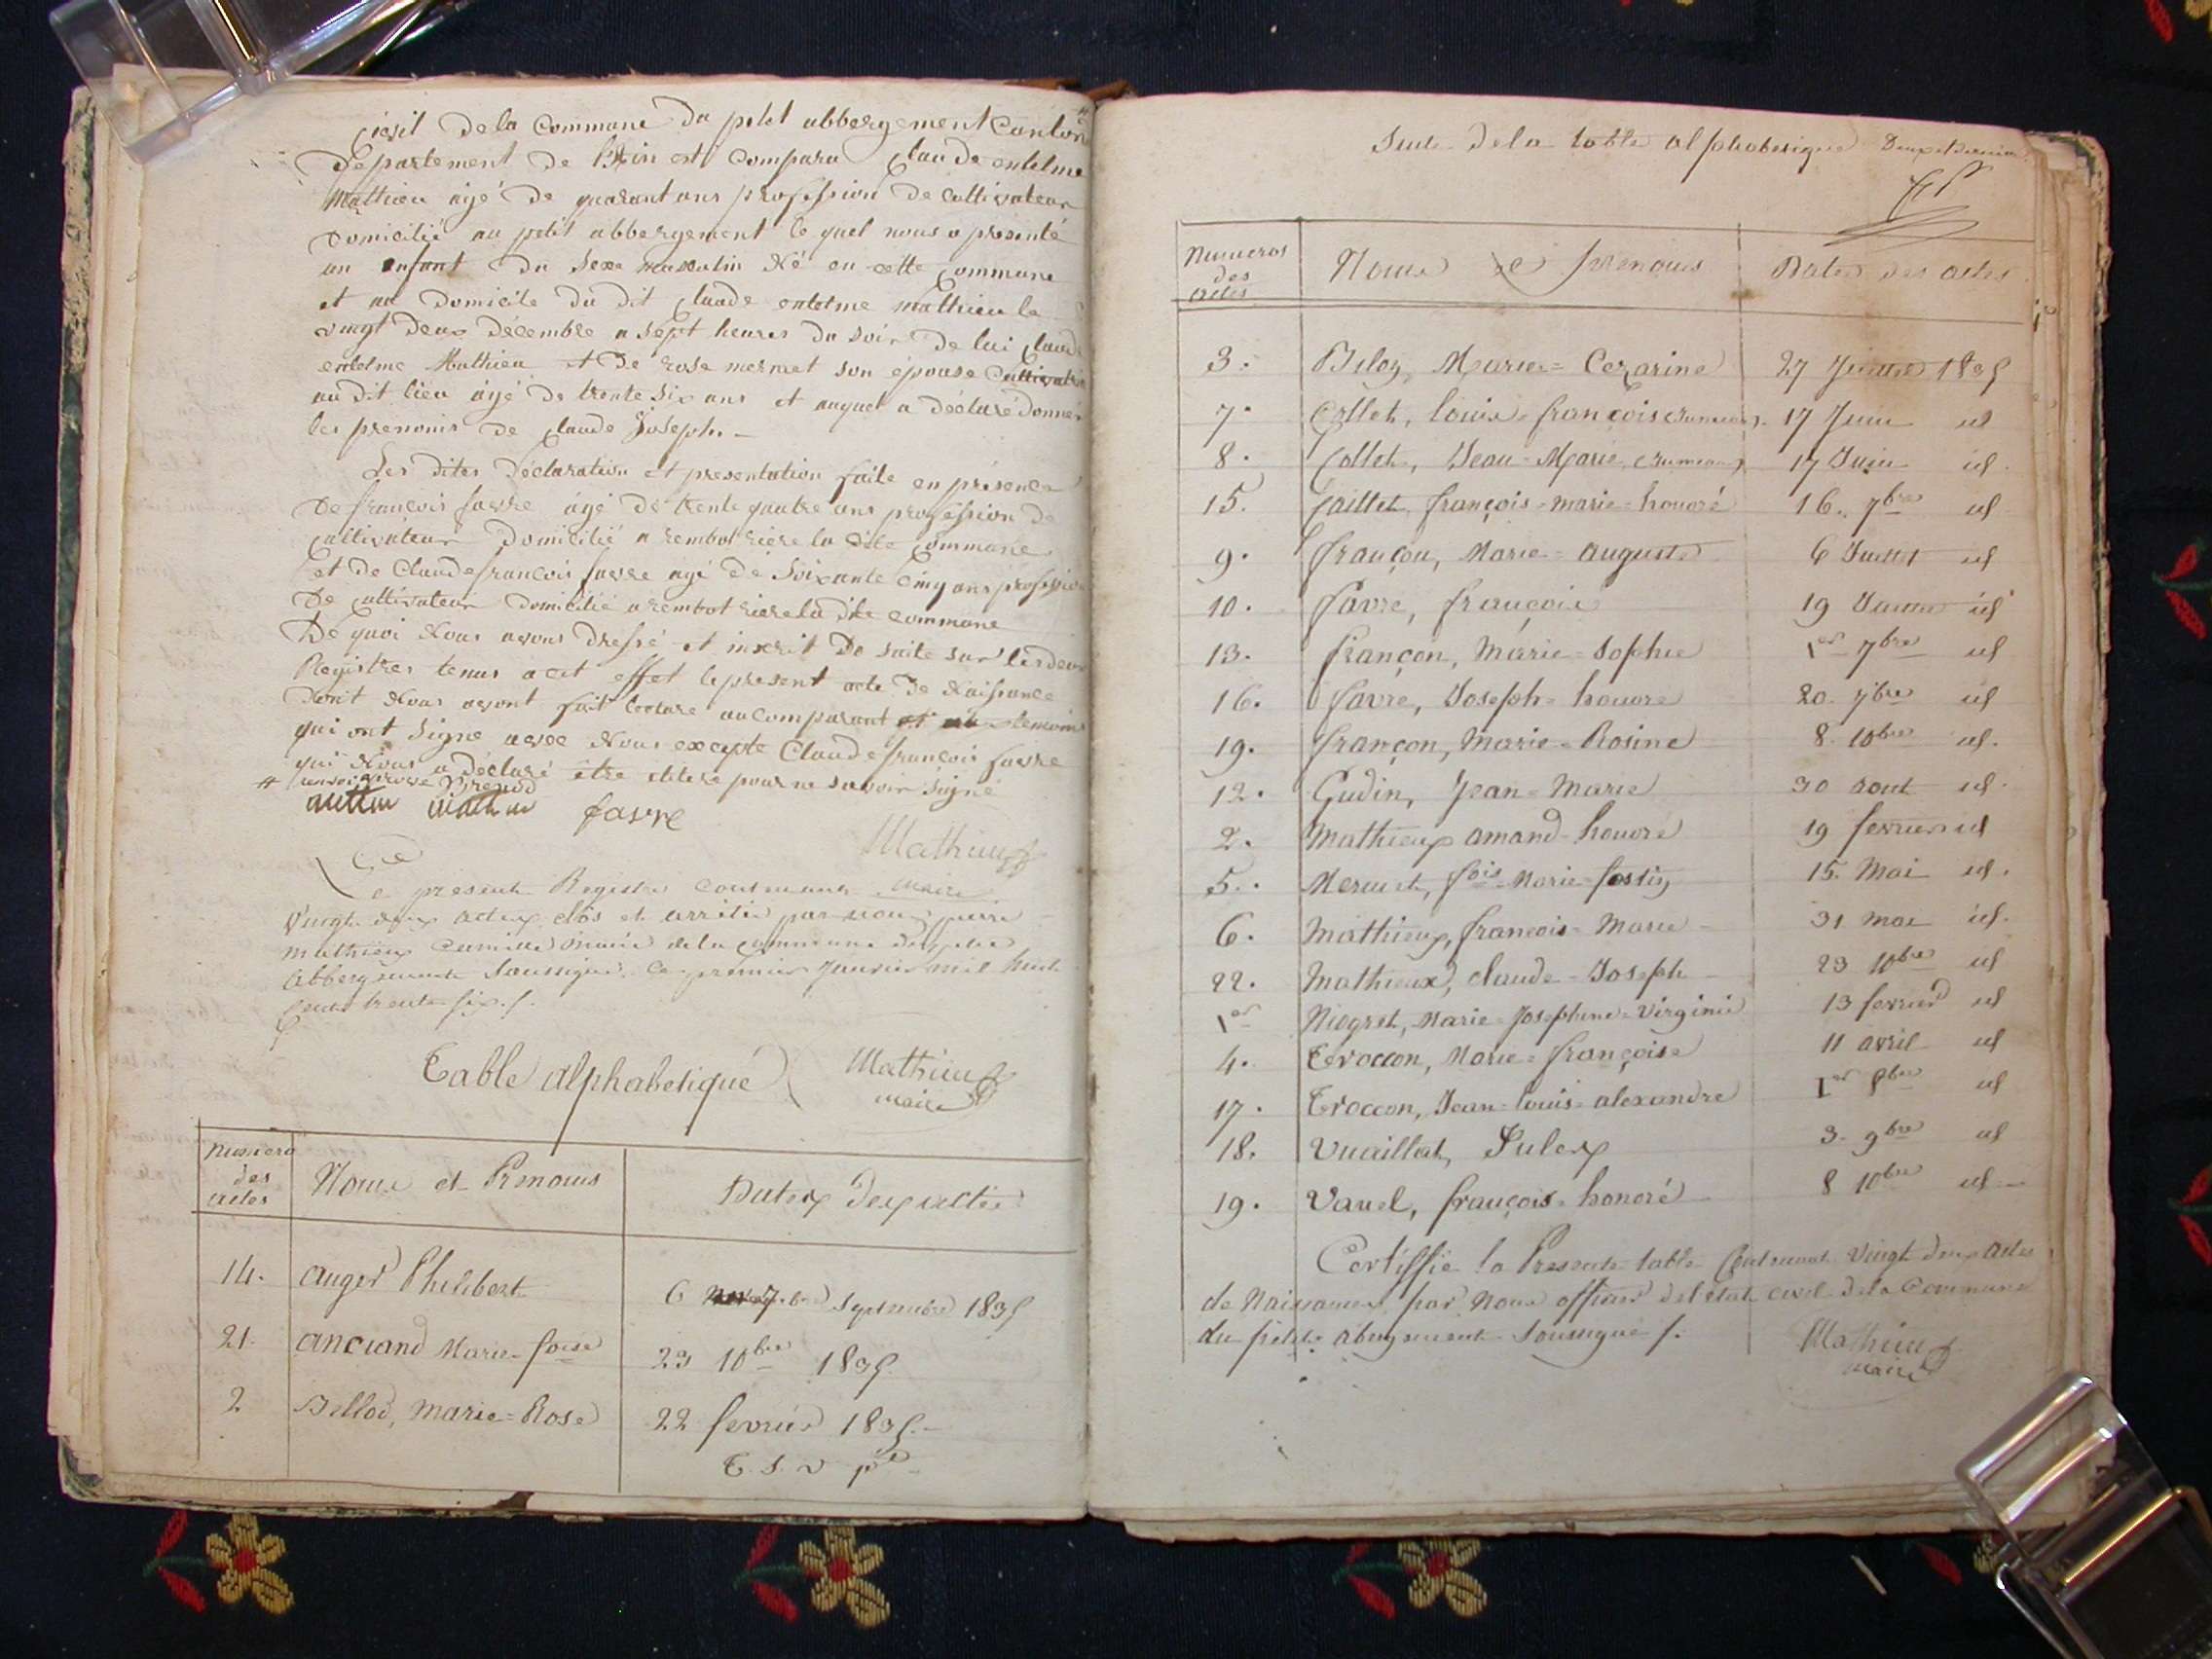 Civil de la Commune du petit abbergement Canton #
Département de l'Ain est Comparu Claude entelme
Mathieu agé de quarant ans profession de Cultivateur
domicilié au petit abbergement le quel nous a présenté
un enfant du Sexe masculin Né en cette Commune
et au Domicile du dit Claude entelme mathieu le
vingt deux décembre a sept heures du soir de lui Claude
entelme Mathieu et de rose mermet son épouse Cultivatrice
au dit lieu agé de trente six ans et auquel a déclaré donner
les prenoms de Claude Joseph. -
Les dites déclaration et présentation faite en présence
de françois favre agé de trente quatre ans profession de
Cultivateur domicilié a rembot riere la dite Commune
et de Claude françois favre agé de Soixante Cinq ans profession
De Cultivateur domicilié a rembot riere la dite commune
De quoi Nous avons dressé et inscrit De suite sur les deux
Registres tenus a cet effet le présent acte De Naissance
dont Nous avont fait lecture au Comparant et au temoins
qui ont signé avec Nous excepte Claude françois favre
qui Nous a déclaré être elitere pour ne savoir signé
# Brenod
favre
Mathieu
maire
Le présent Registre Contenant
Vingt deux actes clos et arrêtés par nous pierre
Mathieux Camille Maire de la Commune du petit
Abbergement Soussigné. Ce premier Janvier mil huit
Cent trente six ./.
Table alphabetique
Mathieu
maire
Numero
des
actes
Noms et Prenoms
Dates des actes
14. auger Philibert 6 Septembre 1835
21. anciand Marie-foise 23 10bre 1835.
2 Bellod, Marie=Rose 22 fevrier 1835.-
T. S. V. p
Suite de la table alphabetique
Numeros
des
actes
Noms et prenoms
Dates des actes
3. Marie= Cezarine 27 1835
7. Collet, louis-françois (Jumeau). 17 Juin id
8. Collet, Jean-Marie (Jumeau) 17 Juin id.
15. Caillet françois-marie-honoré 16. 7bre id
9. françon, Marie=auguste 6 Juillet id
10. favre, françois 19 id
13. françon, Marie=Sophie 1er 7bre id
16. favre, Joseph=honore 20. 7bre id
19. françon, Marie=Rosine 8. 10bre id.
12. Gudin, Jean=Marie 30 aout id.
2. Mathieux amand-honoré 19 fevrier id
5. Mermet, fois-Marie- 15. Mai id.
6. Mathieux, francois-Marie 31 mai id.
22. Mathieux, claude-Joseph 23 10bre id
1er Niogret, Marie=Josephine=Virginie 13 fevrier id
4. Troccon, Marie=françoise 11 avril id
17. Troccon, Jean=louis=alexandre 1er 8bre id
18. Vuaillat, Jules 3. 9bre id
19. Vauel, françois=honoré 8 10bre id
Certiffié la Presente table Contenant Vingt deux actes
de Naissances par Nous officier de l'état civil de la Commune
du petit abergement Soussigné /.
Mathieu
maire